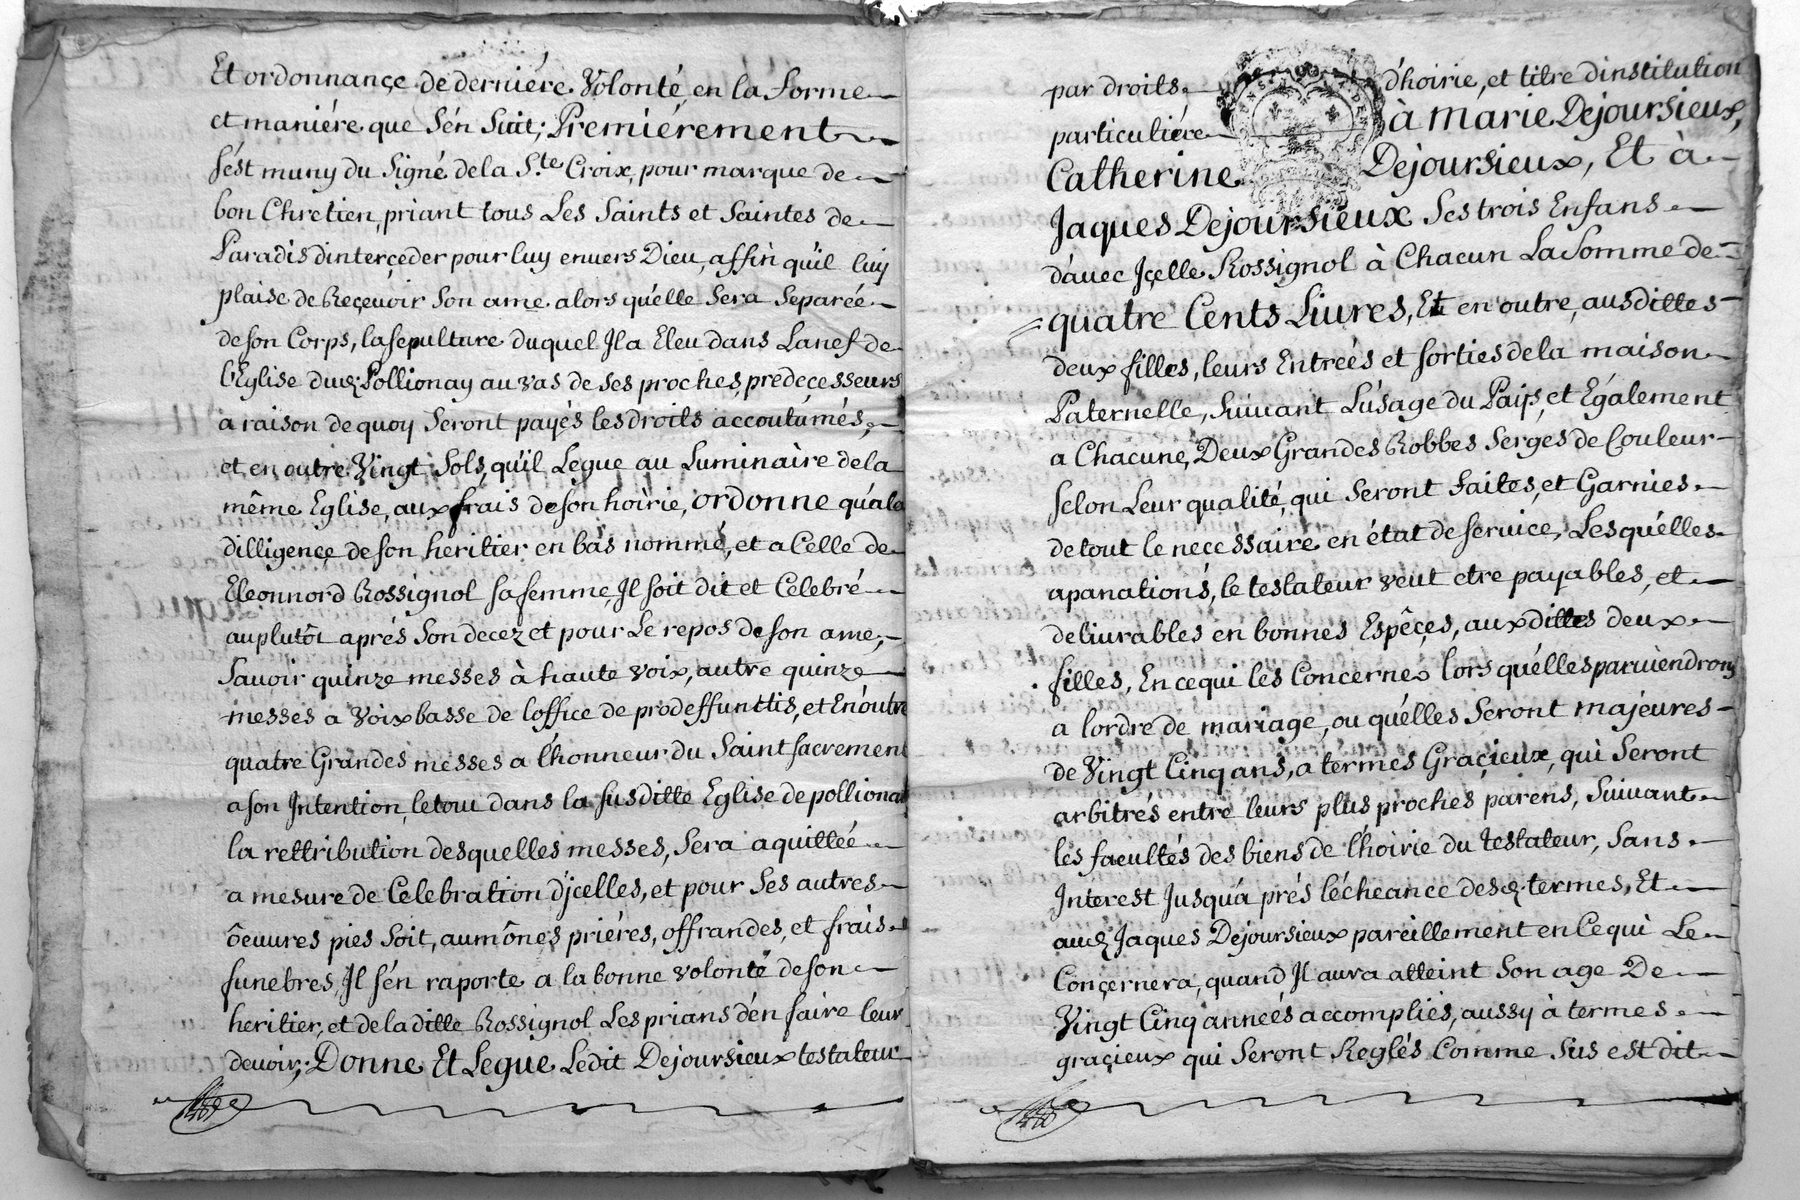 Et ordonnançe de derniére Volonté en la forme
et maniére que S'én Suit; Premiérement
s'ést muny du Signé de la S.te Croix, pour marque de
bon Chretien, priant tous Les Saints et Saintes de
Paradis d'interçeder pour luy envers Dieu, affin qu'il luy
plaise de Reçevoir Son ame alors qu'elle Sera Separée
de son Corps, la sepulture duquel Il a Eleu dans La nef de
l'Eglise dud. Pollionay au vas de ses proches predecesseurs
a raison de quoy Seront payés les droits accoutúmés,
et en outre Vingt Sols, qu'il Legue au Luminaire de la
même Eglise, aux frais de son hoirie, ordonne qu'a la
dilligençe de son heritier en bas nommé, et a Celle de
Eleonnord Rossignol sa femme, Il soit dit et Celebré
au plutôt aprés Son decez et pour Le repos de son ame,
Savoir quinze messes à haute voix, autre quinze
messes a voix basse de l'office de pro deffunttis, et En outre
quatre Grandes messes a l'honneur du Saint sacrement
a son Intention, le tout dans la susditte Eglise de pollionay
la rettribution desquelles messes, Sera aquittée
a mesure de Celebration d'jcelles, et pour Ses autres
ôeuvres pies Soit, aumônes priéres, offrandes, et frais
funebres, Il s'én raporte a la bonne volonté de son
heritier, et de la ditte Rossignol Les prians d'én faire leur
devoir; Donne Et Legue Ledit Dejoursieux testateur
par droits d'hoirie, et titre d'institution
particuliére à Marie Dejoursieux,
Catherine Dejoursieux, Et à
Jaques Dejoursieux Ses trois Enfans
d'avec Içelle Rossignol à Chacun La Somme de
quatre Cents Livres, Et en outre, ausdittes
deux filles, leurs Entreés et sorties de la maison
Paternelle, Suivant L'úsage du Païs, et Également
a Chacune, Deux Grandes Robbes Serges de Couleur
selon Leur qualité, qui Seront faites, et Garnies
de tout le necessaire en état de service, Lesqu'élles
apanations, le testateur veut etre payables, et
delivrables en bonnes Espêçes, aux dittes deux
filles, En ce qui les Concerne lors qu'élles parviendront
a l'ordre de mariage, ou qu'élles Seront majeures
de Vingt Cinq ans, a termes Graçieux, qui Seront
arbitrés entre leurs plus proches parens, Suivant
les facultés des biens de l'hoirie du testateur, Sans
Interest Jusqu'á prés l'écheance desd. termes, Et
aud. Jaques Dejoursieux pareillement en Ce qui Le
Conçernera, quand Il aura atteint Son age De
Vingt Cinq années accomplies, aussy à termes
graçieux qui Seront Reglés Comme Sus est dit